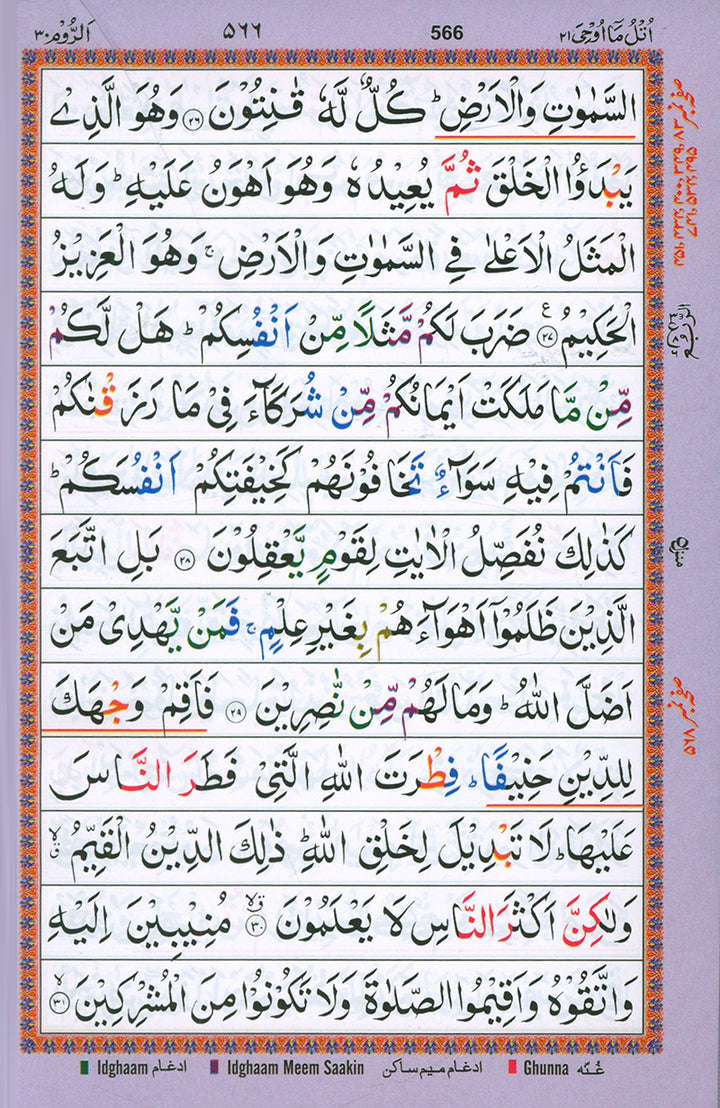 اُتۡلُ مَاۤ اُوۡحِیَ ٢١ 566 ٥٦٦ اَلرُّوۡم ٣٠
السَّمٰوٰتِ وَالۡاَرۡضِ ؕ کُلٌّ لَّهٗ قٰنِتُوۡنَ ﴿۲۶﴾ وَهُوَ الَّذِیۡ
یَبۡدَؤُا الۡخَلۡقَ ثُمَّ یُعِیۡدُهٗ وَهُوَ اَهۡوَنُ عَلَیۡهِ ؕ وَلَهُ
الۡمَثَلُ الۡاَعۡلٰی فِی السَّمٰوٰتِ وَالۡاَرۡضِ ۚ وَهُوَ الۡعَزِیۡزُ
الۡحَکِیۡمُ ﴿۲۷﴾ ضَرَبَ لَکُمۡ مَّثَلًا مِّنۡ اَنۡفُسِکُمۡ ؕ هَلۡ لَّکُمۡ
مِّنۡ مَّا مَلَکَتۡ اَیۡمَانُکُمۡ مِّنۡ شُرَکَآءَ فِیۡ مَا رَزَقۡنٰکُمۡ
فَاَنۡتُمۡ فِیۡهِ سَوَآءٌ تَخَافُوۡنَهُمۡ کَخِیۡفَتِکُمۡ اَنۡفُسَکُمۡ ؕ
کَذٰلِكَ نُفَصِّلُ الۡاٰیٰتِ لِقَوۡمٍ یَّعۡقِلُوۡنَ ﴿۲۸﴾ بَلِ اتَّبَعَ
الَّذِیۡنَ ظَلَمُوۡۤا اَهۡوَآءَهُمۡ بِغَیۡرِ عِلۡمٍ ۚ فَمَنۡ یَّهۡدِیۡ مَنۡ
اَضَلَّ اللّٰهُ ؕ وَمَا لَهُمۡ مِّنۡ نّٰصِرِیۡنَ ﴿۲۹﴾ فَاَقِمۡ وَجۡهَكَ
لِلدِّیۡنِ حَنِیۡفًا ؕ فِطۡرَتَ اللّٰهِ الَّتِیۡ فَطَرَ النَّاسَ
عَلَیۡهَا ؕ لَا تَبۡدِیۡلَ لِخَلۡقِ اللّٰهِ ؕ ذٰلِكَ الدِّیۡنُ الۡقَیِّمُ ۙ
وَلٰکِنَّ اَکۡثَرَ النَّاسِ لَا یَعۡلَمُوۡنَ ﴿۳۰﴾ مُنِیۡبِیۡنَ اِلَیۡهِ
وَاتَّقُوۡهُ وَاَقِیۡمُوا الصَّلٰوةَ وَلَا تَکُوۡنُوۡا مِنَ الۡمُشۡرِکِیۡنَ ﴿۳۱﴾
Idghaam ادغام Idghaam Meem Saakin ادغام میم ساکن Ghunna غُنّه